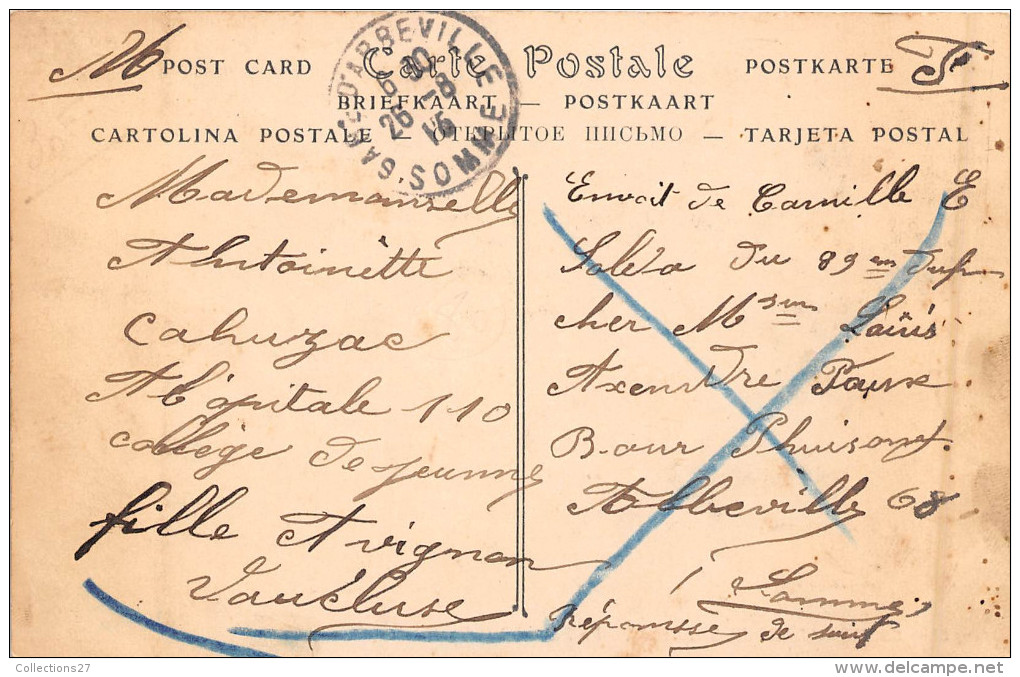 POST CARD Carte Postale POSTKARTE
BRIEFKAART — POSTKAART
CARTOLINA POSTALE — ОТКРЫТОЕ ПИСЬМО — TARJETA POSTAL
GARE D'ABBEVILLE SOMME
26 -8 15
Mademanselle
Antoinètte
Cahuzac
A l'ôpitale 110
collège de jeunne
fille Avignon
Vaucluse
Envoit de Camille E
du 89 em
cher M Louis
Abbeville 68
Somme
Réponsse de suit
Collections27
http://www.delcampe.net